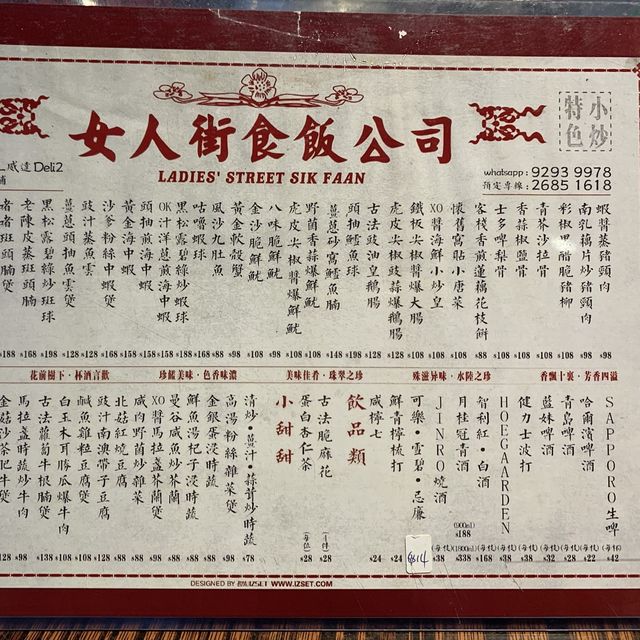 女人街食飯公司
LADIES' STREET SIK FAAN
小炒
特色
威達Deli2
whatsapp : 9293 9978
預定專線 : 2685 1618
蝦醬蒸豬頸肉 $98
南乳藕片炒豬頸肉 $98
彩椒甲醋脆豬柳 $108
青芥沙拉骨 $108
香蒜椒鹽骨 $108
士多啤梨骨 $108
客棧香煎蓮藕花枝餅 $88
懷舊窩貼小唐菜 $108
XO醬海鮮小炒皇 $108
鐵板尖椒醬爆大腸 $108
虎皮尖椒豉蒜爆鵝腸 $108
古法豉油皇鵝腸 $128
頭抽鱈魚球 $128
薑蔥砂窩鱈魚腩 $148
野菌香蒜爆鮮魷 $108
虎皮尖椒醬爆鮮魷 $108
八味脆鮮魷 $98
金沙脆鮮魷 $108
黃金軟殼蟹 $98
風沙九肚魚 $88
咕嚕蝦球 $158
黑松露碧綠炒蝦球
OK汁洋蔥煎海中蝦 $158
頭抽煎海中蝦 $158
黃金海中蝦 $158
沙爹粉絲中蝦煲 $168
豉汁蒸魚雲 $128
薑蔥頭抽魚雲煲 $128
黑松露碧綠炒班球 $198
老陳皮蒸班頭腩 $168
者者班頭腩煲 $188
香飄十裏 · 芳香四溢
殊滋异味 · 水陸之珍
美味佳肴 · 珠翠之珍
珍饈美味 · 色香味濃
花前樹下 · 杯酒言歡
SAPPORO生啤 $42
哈爾濱啤酒 $22
青島啤酒 $28
藍妹啤酒 $32
健力士波打 $38
HOEGAARDEN $38
智利紅 · 白酒 $168
月桂冠清酒 (900ml) $188 (1800ml) $338
JINRO燒酒 $38
可樂 · 雪碧 · 忌廉 $14
鮮青檸梳打 $24
咸檸七 $24
飲品類
古法脆麻花 $28
蛋白杏仁茶 (每位) $28
小甜甜
清炒 · 薑汁 · 蒜茸炒時蔬 $78
高湯粉絲雜菜煲 $98
金銀蛋浸時蔬 $88
鮮魚湯杞子浸時蔬 $88
曼谷咸魚炒芥蘭 $88
XO醬馬拉盞芥蘭煲 $98
咸肉野菌炒雜菜 $88
北菇紅燒豆腐 $88
豉汁南澳帶子豆腐 $128
鹹魚雞粒豆腐煲 $108
白玉木耳勝瓜爆牛肉 $108
古法蘿蔔牛根腩煲 $138
馬拉盞時蔬炒牛肉 $98
金菇沙茶肥牛煲 $128
DESIGNED BY IZSET WWW.IZSET.COM